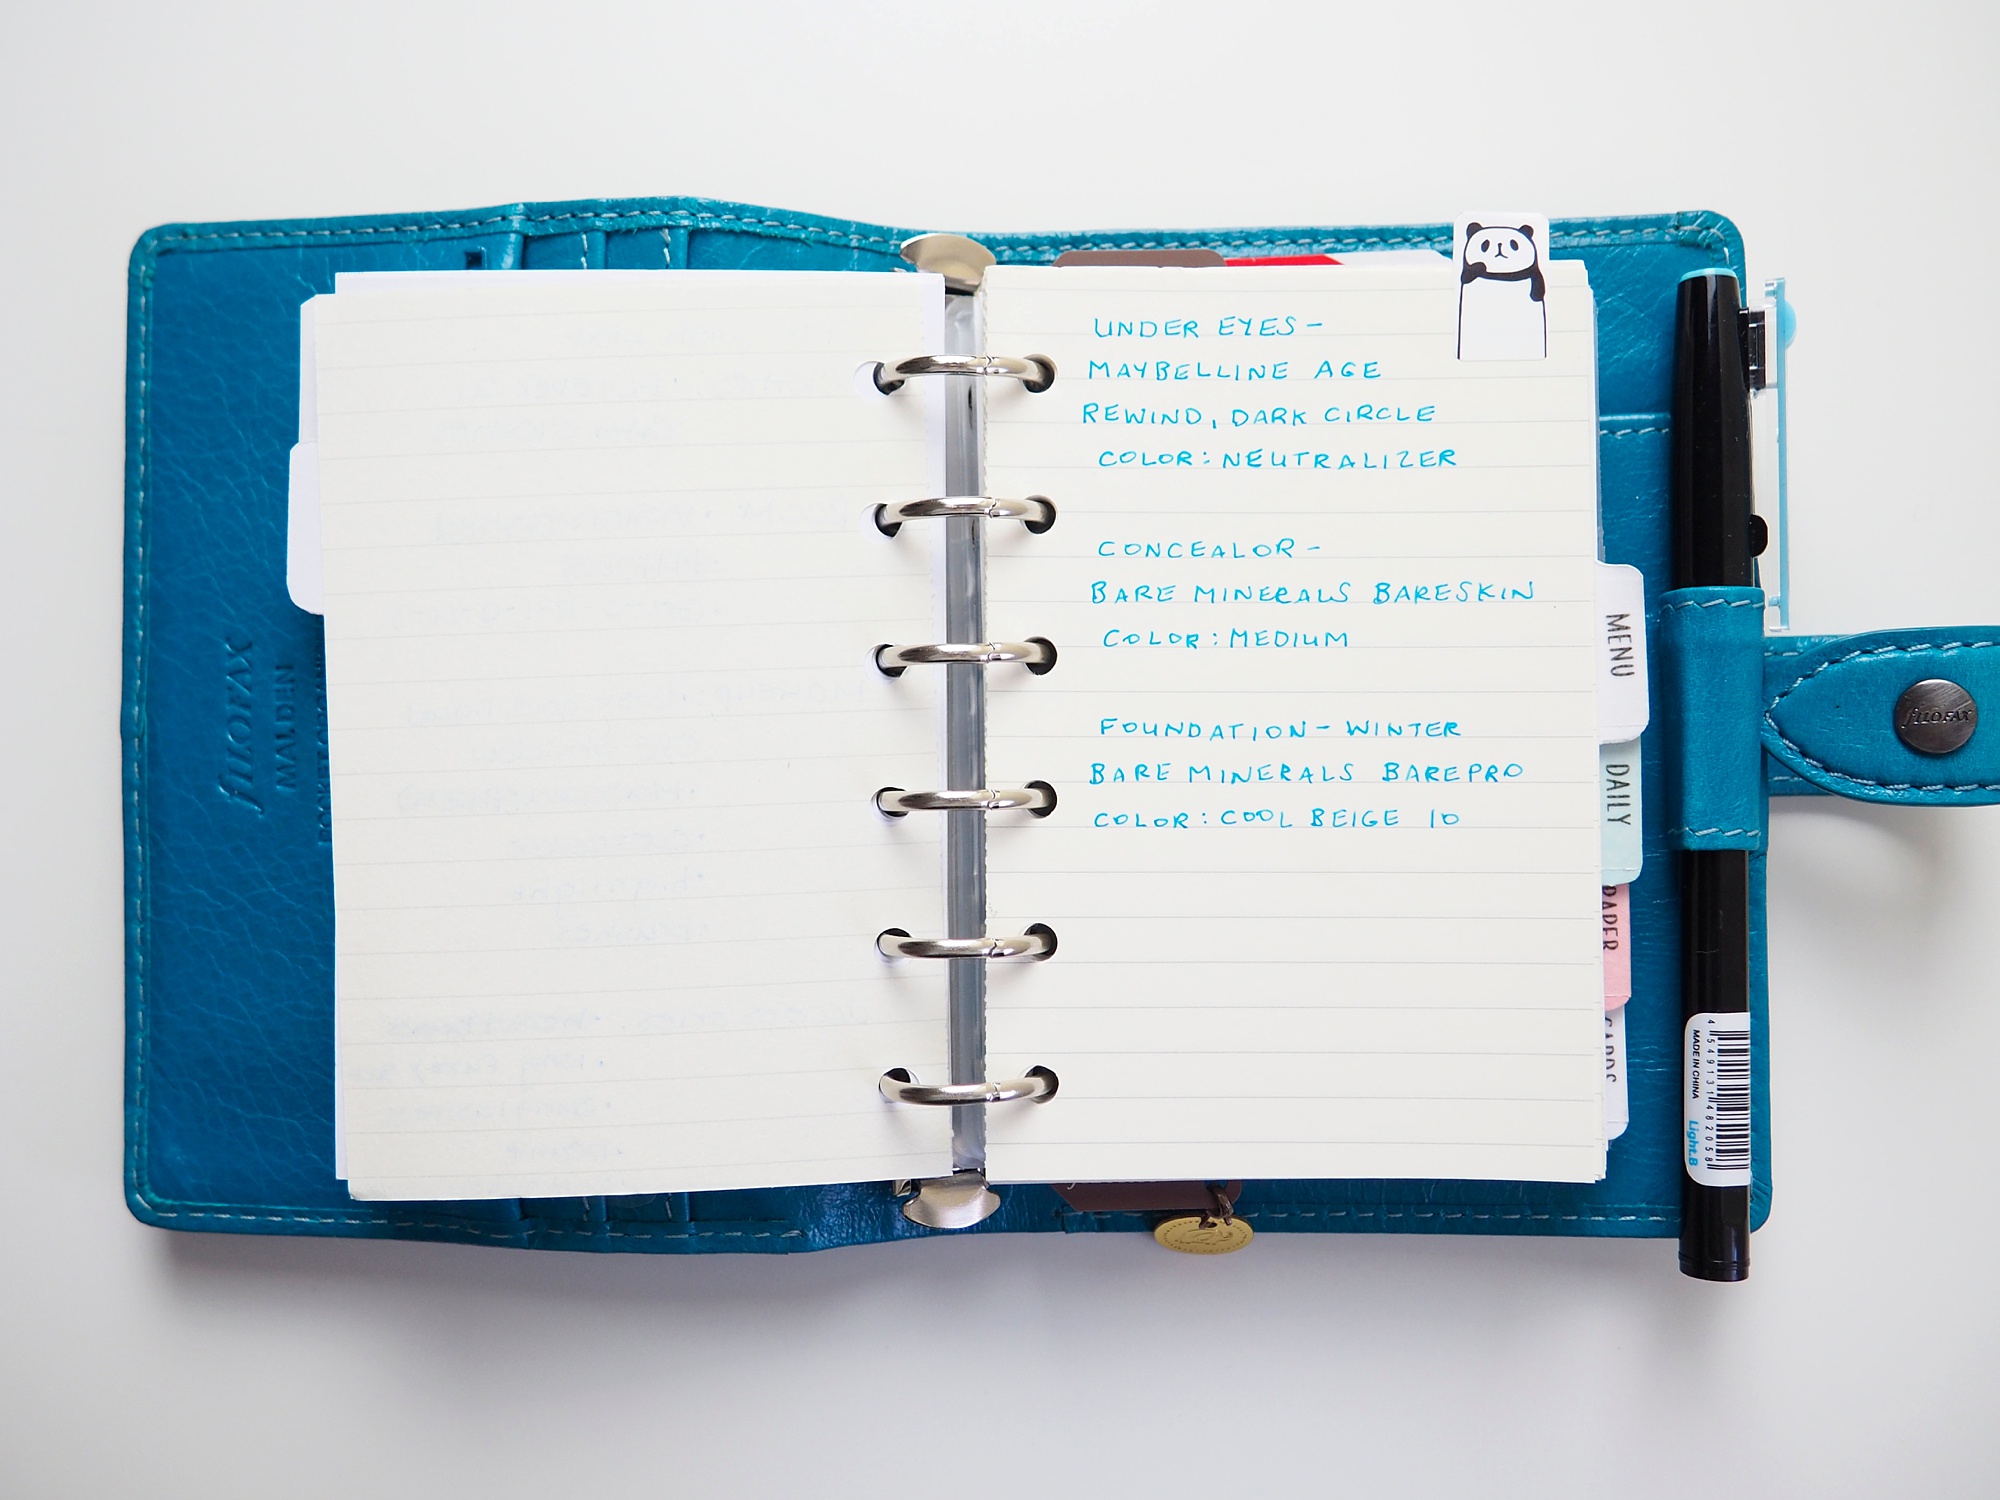 filofax
MALDEN
UNDER EYES -
MAYBELLINE AGE
REWIND, DARK CIRCLE
COLOR: NEUTRALIZER
CONCEALOR -
BARE MINERALS BARESKIN
COLOR: MEDIUM
FOUNDATION - WINTER
BARE MINERALS BAREPRO
COLOR: COOL BEIGE 10
MENU
DAILY
PAPER
CARDS
filofax
4549131482058
MADE IN CHINA
Light.B